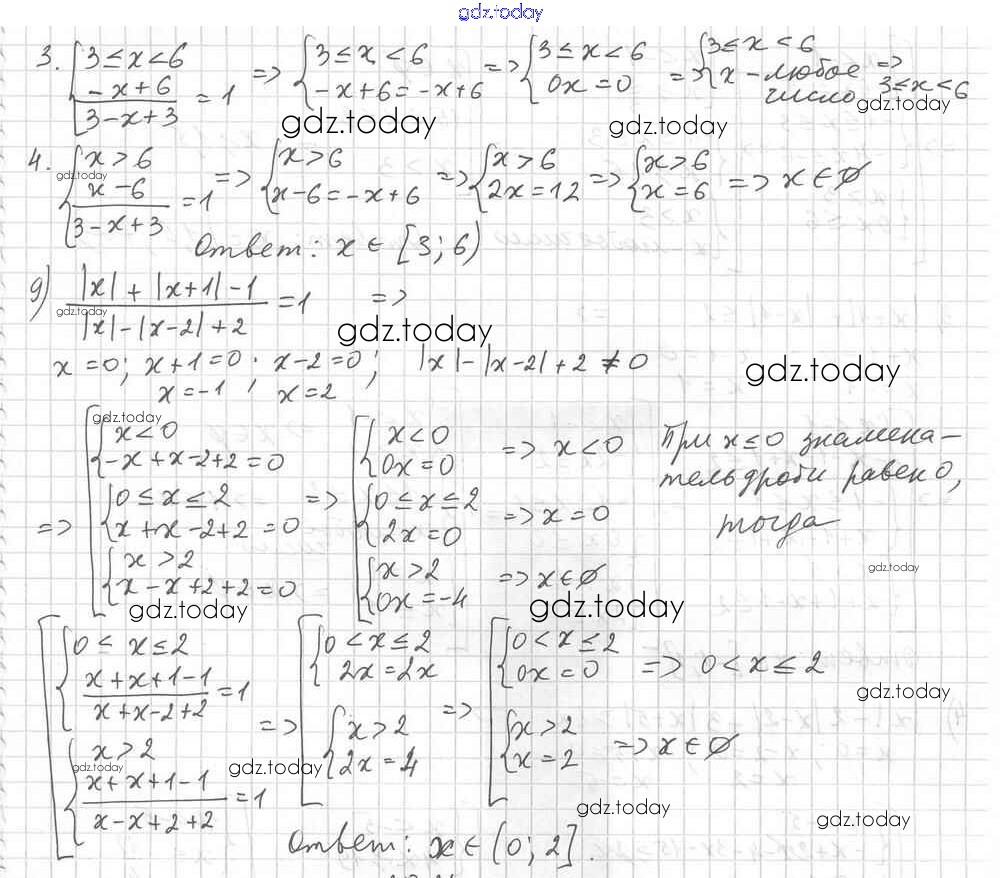 gdz.today
3. { 3 ≤ x < 6 ; (-x+6)/(3-x+3) = 1 => { 3 ≤ x < 6 ; -x+6 = -x+6 => { 3 ≤ x < 6 ; 0x = 0 => { 3 ≤ x < 6 ; x - любое число => 3 ≤ x < 6
gdz.today gdz.today gdz.today
4. { x > 6 ; (x-6)/(3-x+3) = 1 => { x > 6 ; x-6 = -x+6 => { x > 6 ; 2x = 12 => { x > 6 ; x = 6 => x ∈ ∅
gdz.today
Ответ: x ∈ [3; 6)
g) (|x| + |x+1| - 1)/(|x| - |x-2| + 2) = 1 =>
gdz.today gdz.today
x = 0; x+1 = 0; x-2 = 0; |x| - |x-2| + 2 ≠ 0
x = -1; x = 2
gdz.today
gdz.today
=> [ { x < 0 ; -x+x-2+2 = 0 => [ { x < 0 ; 0x = 0 => x < 0
{ 0 ≤ x ≤ 2 ; x+x-2+2 = 0 { 0 ≤ x ≤ 2 ; 2x = 0 => x = 0
{ x > 2 ; x-x+2+2 = 0 { x > 2 ; 0x = -4 => x ∈ ∅
При x ≤ 0 знамена-
тель дроби равен 0,
тогда
gdz.today
gdz.today gdz.today
[ { 0 < x ≤ 2 ; (x+x+1-1)/(x+x-2+2) = 1 => [ { 0 < x ≤ 2 ; 2x = 2x => [ { 0 < x ≤ 2 ; 0x = 0 => 0 < x ≤ 2
gdz.today
{ x > 2 ; (x+x+1-1)/(x-x+2+2) = 1 { x > 2 ; 2x = 4 { x > 2 ; x = 2 => x ∈ ∅
gdz.today gdz.today
gdz.today gdz.today
Ответ: x ∈ (0; 2].